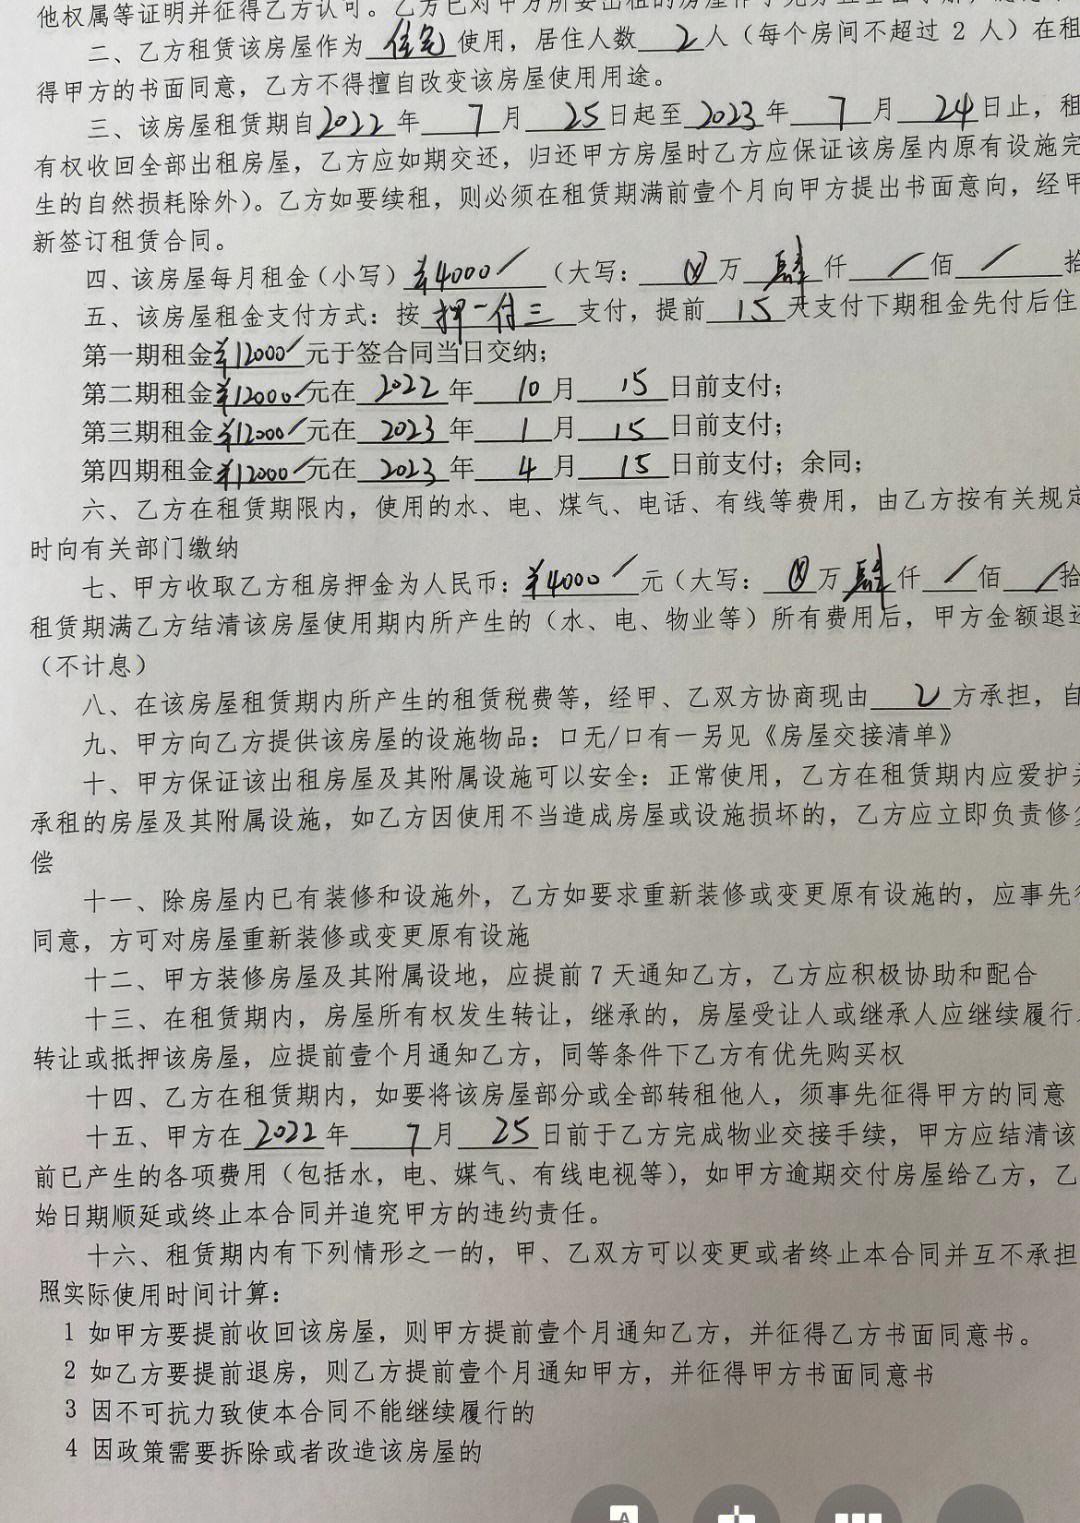 他权属等证明并征得乙方认可。乙方已对甲方所要出租的房屋作了充分
二、乙方租赁该房屋作为 住宅 使用，居住人数 2 人（每个房间不超过 2 人）在租
得甲方的书面同意，乙方不得擅自改变该房屋使用用途。
三、该房屋租赁期自2022年 7 月 25 日起至 2023年 7 月 24日止，租
有权收回全部出租房屋，乙方应如期交还，归还甲方房屋时乙方应保证该房屋内原有设施完
生的自然损耗除外）。乙方如要续租，则必须在租赁期满前壹个月向甲方提出书面意向，经甲
新签订租赁合同。
四、该房屋每月租金（小写）¥4000/ （大写： ⊗ 万 肆 仟 / 佰 / 拾
五、该房屋租金支付方式：按 押一付三 支付，提前 15 天支付下期租金先付后住
第一期租金¥12000/元于签合同当日交纳；
第二期租金¥12000/元在 2022 年 10 月 15 日前支付；
第三期租金¥12000/元在 2023 年 1 月 15 日前支付；
第四期租金¥12000/元在 2023 年 4 月 15 日前支付；余同；
六、乙方在租赁期限内，使用的水、电、煤气、电话、有线等费用，由乙方按有关规定
时向有关部门缴纳
七、甲方收取乙方租房押金为人民币：¥4000/ 元（大写： ⊗ 万 肆 仟 / 佰 / 拾
租赁期满乙方结清该房屋使用期内所产生的（水、电、物业等）所有费用后，甲方金额退还
（不计息）
八、在该房屋租赁期内所产生的租赁税费等，经甲、乙双方协商现由 乙 方承担，自
九、甲方向乙方提供该房屋的设施物品：口无/口有一另见《房屋交接清单》
十、甲方保证该出租房屋及其附属设施可以安全：正常使用，乙方在租赁期内应爱护
承租的房屋及其附属设施，如乙方因使用不当造成房屋或设施损坏的，乙方应立即负责修复
偿
十一、除房屋内已有装修和设施外，乙方如要求重新装修或变更原有设施的，应事先
同意，方可对房屋重新装修或变更原有设施
十二、甲方装修房屋及其附属设地，应提前 7 天通知乙方，乙方应积极协助和配合
十三、在租赁期内，房屋所有权发生转让，继承的，房屋受让人或继承人应继续履行
转让或抵押该房屋，应提前壹个月通知乙方，同等条件下乙方有优先购买权
十四、乙方在租赁期内，如要将该房屋部分或全部转租他人，须事先征得甲方的同意
十五、甲方在 2022 年 7 月 25 日前于乙方完成物业交接手续，甲方应结清该
前已产生的各项费用（包括水，电、媒气、有线电视等），如甲方逾期交付房屋给乙方，乙
始日期顺延或终止本合同并追究甲方的违约责任。
十六、租赁期内有下列情形之一的，甲、乙双方可以变更或者终止本合同并互不承担
照实际使用时间计算：
1 如甲方要提前收回该房屋，则甲方提前壹个月通知乙方，并征得乙方书面同意书。
2 如乙方要提前退房，则乙方提前壹个月通知甲方，并征得甲方书面同意书
3 因不可抗力致使本合同不能继续履行的
4 因政策需要拆除或者改造该房屋的
A